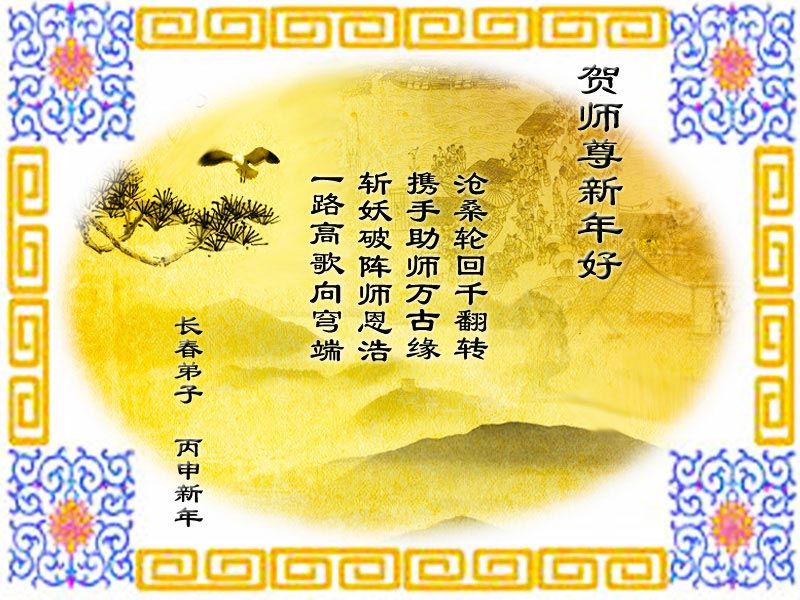 贺师尊新年好
沧桑轮回千翻转
携手助师万古缘
斩妖破阵师恩浩
一路高歌向穹端
长春弟子 丙申新年